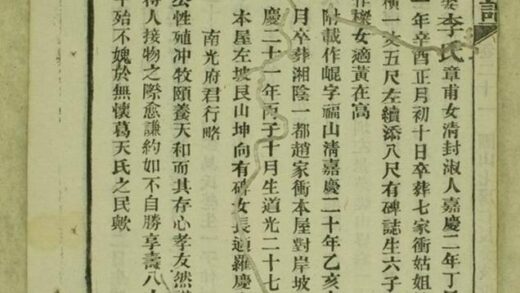 李氏章甫女清封淑人嘉慶二年丁
年辛酉正月初十日卒葬七家衝姑姐
橫一亥五尺左續添八尺有碑誌生六子
女適黃在高
附載作崐字福山清嘉慶二十年乙亥
月卒葬湘陰一都趙家衝本屋對岸坡
慶二十一年丙子十月生道光二十七
本屋左坡艮山坤向有碑女長適羅慶
南光府君行略
公性殖冲牧頤養天和而其存心孝友然
待人接物之際愈謙約如不自勝享壽八
殆不媿於無懷葛天氏之民歟